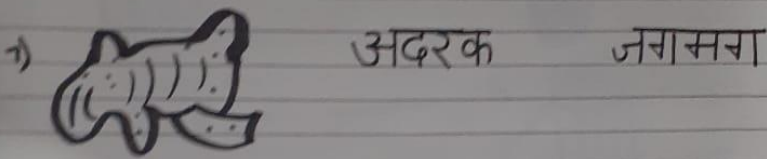 7) अदरक जगमग